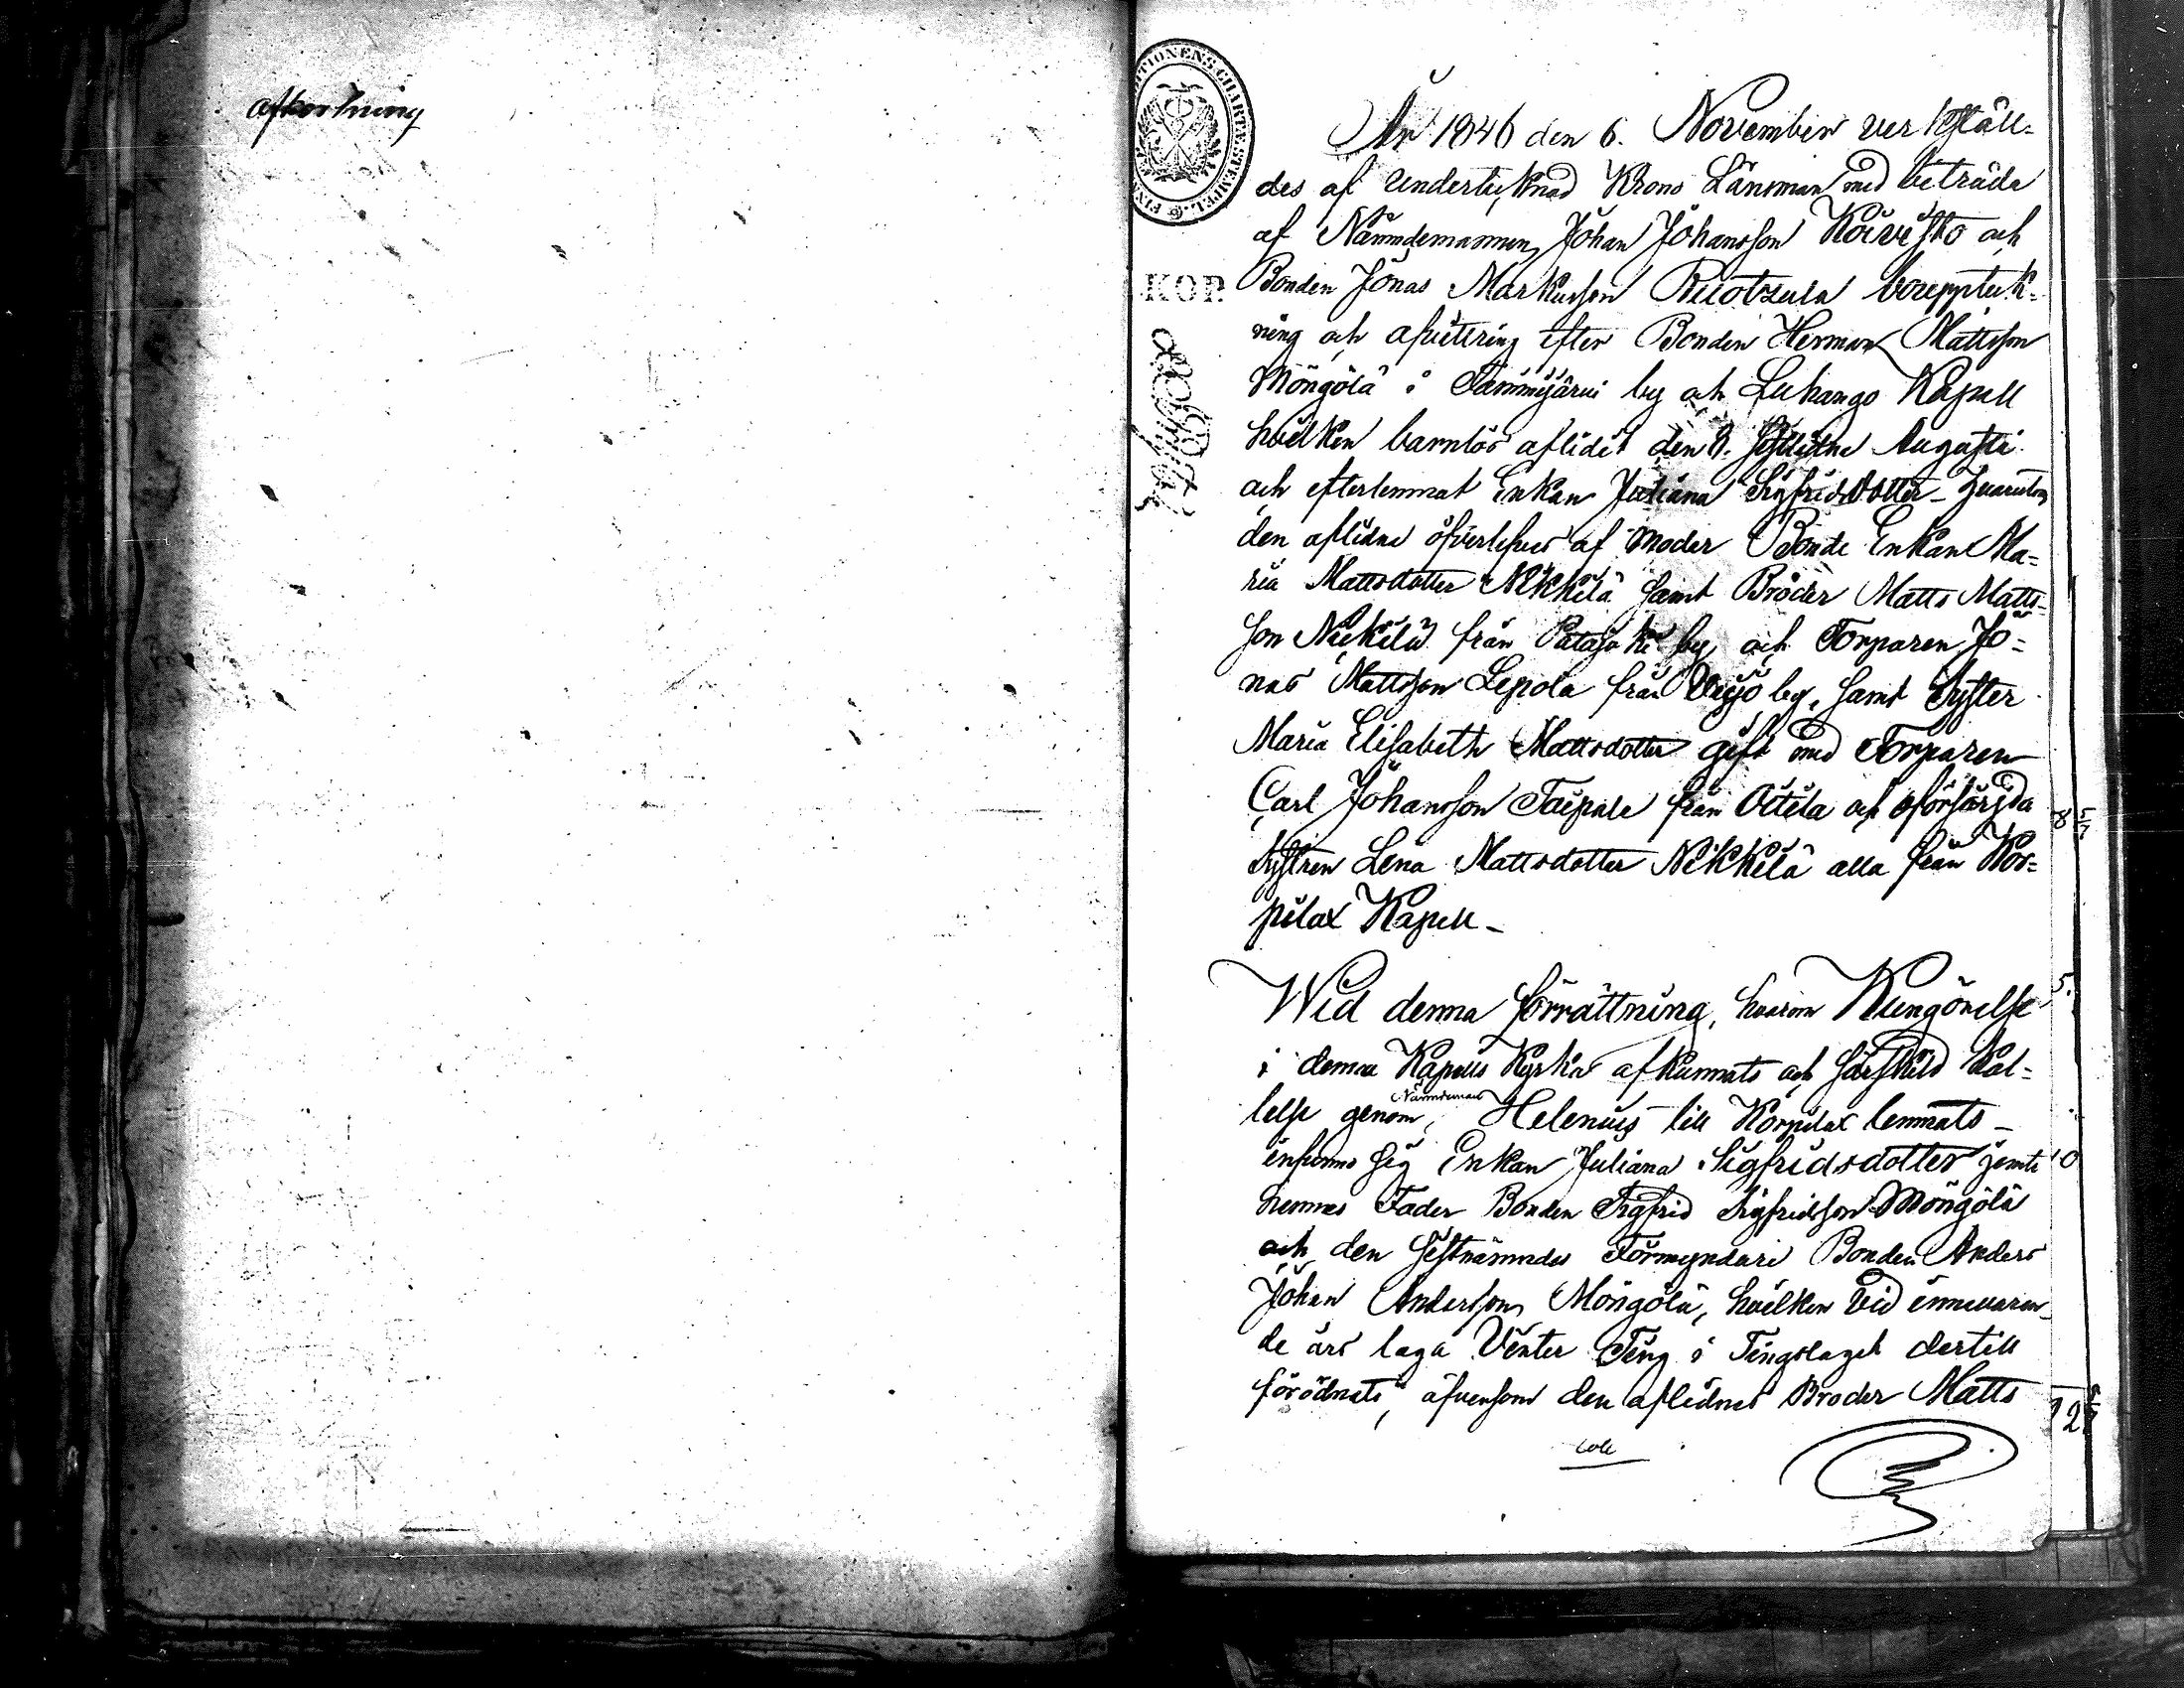 afkortning
År 1846 den 6. November verkstäl-
des af undertecknad Krono Länsman med biträde
af Nämndemannen Johan Johansson Koivisto och
Bonden Jonas Markusson Ruotzula boupptek-
ning och afvittring efter Bonden Herman Mattsson
Möngölä i Tammijärvi by och Luhango Kapell
hvilken barnlös aflidit den 8. sistlidne Augusti
och efterlemnat Enkan Juliana Sigfridsdotter - hvarutom
den aflidne öfverlefves af moder Bonde Enkan Ma-
ria Mattsdotter Nikkilä samt Bröder Matts Matts-
son Nickilä från Patajoki by och Torparen Jo-
nas Mattsson Lepola från by, samt Syster
Maria Elisabeth Mattsdotter gift med Torparen
Carl Johansson Taipale från Oitila och oförsörgda
Systren Lena Mattsdotter Nikkilä alla från Kor-
pilax Kapell -
Wid denna förrättning, hvarom Kungörelse
i denna Kapells Kyrka afkunnats och särskild Kal-
Nämndeman
lelse genom Helenius till Korpilax lemnats -
infunno sig Enkan Juliana Sigfridsdotter jemte
hennes Fader Bonden Sigfrid Sigfridsson Möngölä
och den sistnämndes Förmyndare Bonden Anders
Johan Andersson Möngölä, hvilken vid innevaran-
de års laga Vinter Ting i Tingslaget dertill
förodnats, äfvensom den aflidnes Broder Matts
KOP.
8
5.
10
12